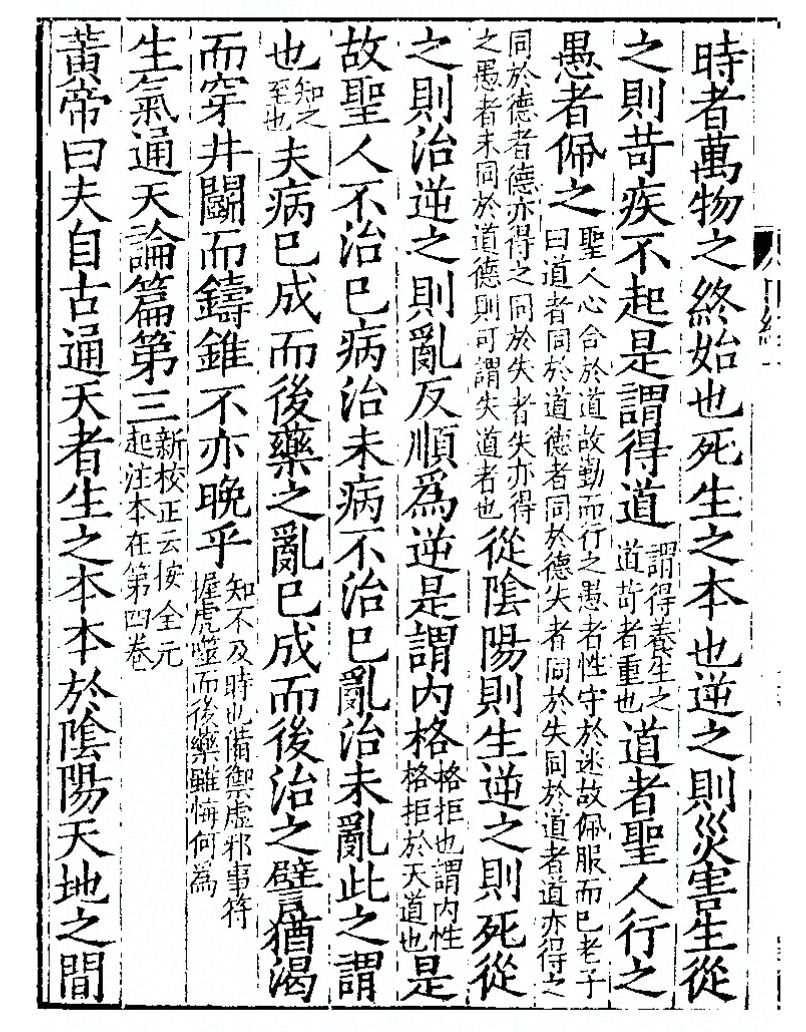 時者萬物之終始也死生之本也逆之則災害生從
之則苛疾不起是謂得道謂得養生之道苛者重也道者聖人行之
愚者佩之聖人心合於道故勤而行之愚者性守於迷故佩服而已老子曰道者同於道德者同於德失者同於失同於道者道亦得之
同於德者德亦得之同於失者失亦得之愚者未同於道德則可謂失道者也從陰陽則生逆之則死從
之則治逆之則亂反順為逆是謂內格格拒也謂內性格拒於天道也是
故聖人不治已病治未病不治已亂治未亂此之謂
也知之至也夫病已成而後藥之亂已成而後治之譬猶渴
而穿井鬭而鑄錐不亦晚乎知不及時也備禦虛邪事符握虎噬而後藥雖悔何為
生氣通天論篇第三新校正云按全元起注本在第四卷
黃帝曰夫自古通天者生之本本於陰陽天地之間